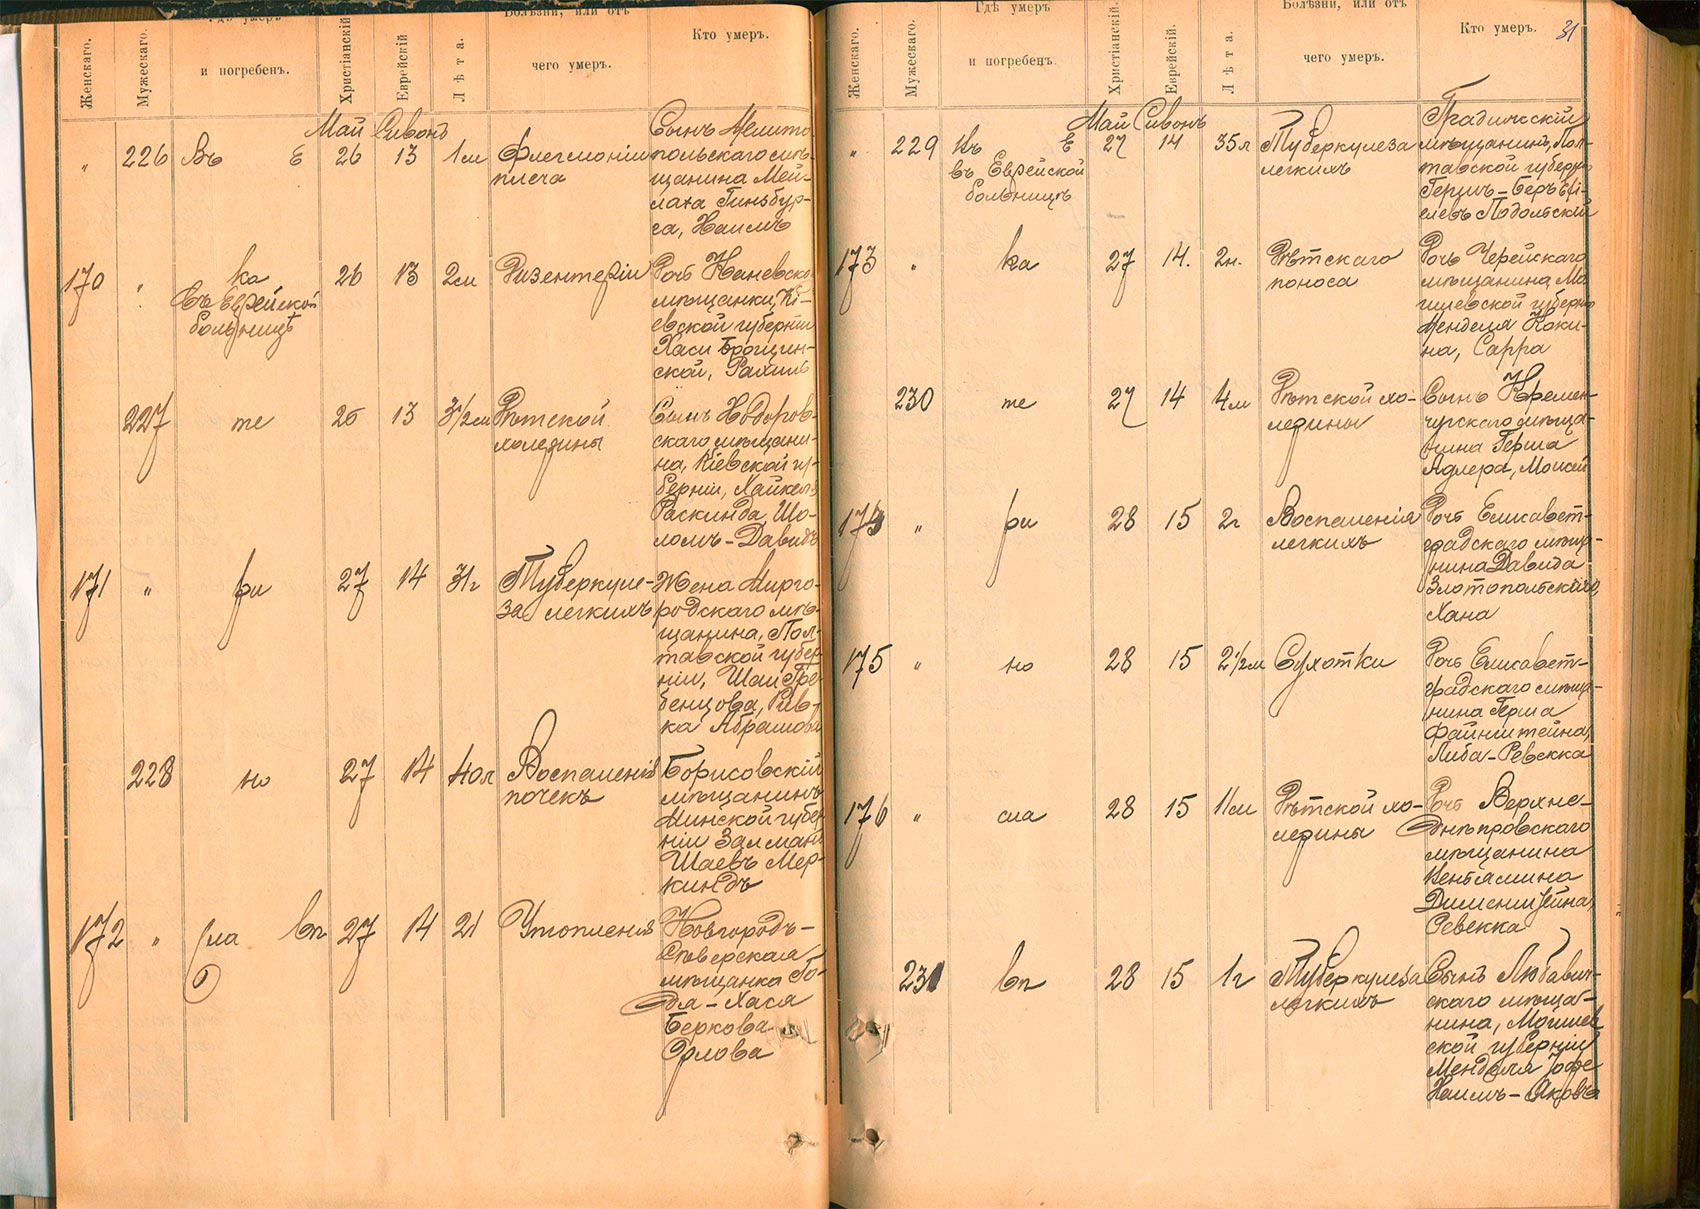 Женскаго.
Мужескаго.
Гдѣ умеръ
и погребенъ.
Христіанскій
Еврейскій
Лѣта.
Болѣзни, или отъ
чего умеръ.
Кто умеръ.
Май Сивонъ
„ 226 Въ Е 26 13 1м Флегмоніи
плеча
Сынъ Мелито-
польскаго мѣ-
щанина Мей-
лаха Гинзбур-
га, Хаимъ
170 „ ка 26 13 2м Дизентеріи
въ Еврейской
больницѣ
Дочь Каневской
мѣщанки, Кі-
евской губерніи
Хаси Брощин-
ской, Рахиль
227 те 26 13 3½м Дѣтской
холерины
Сынъ Ходоров-
скаго мѣщани-
на, Кіевской гу-
берніи, Хайкеля
Раскинда, Шо-
ломъ-Давидъ
171 „ ри 27 14 31г Туберкуле-
за легкихъ
Жена Мирго-
родскаго мѣ-
щанина, Пол-
тавской губер-
ніи, Шаи Гре-
бенцова, Рив-
ка Абрамова
228 но 27 14 40л Воспаленія
почекъ
Борисовскій
мѣщанинъ
Минской губер-
ніи Залманъ
Шаевъ Мер-
киндъ
172 „ сла вп 27 14 21 Утопленія
Новгородъ-
Сѣверская
мѣщанка Го-
дя-Хася
Беркова
Орлова
Женскаго.
Мужескаго.
Гдѣ умеръ
и погребенъ.
Христіанскій.
Еврейскій.
Лѣта.
Болѣзни, или отъ
чего умеръ.
Кто умеръ.
31
Май Сивонъ
„ 229 Къ Е 27 14 35л Туберкулеза
въ Еврейской
больницѣ
легкихъ
Градижскій
мѣщанинъ, Пол-
тавской губерн.
Гершъ-Беръ
Подольскій
173 „ ка 27 14. 2н. Дѣтскаго
поноса
Дочь Черейскаго
мѣщанина, Мо-
гилевской губерн.
Менделя Коки-
на, Сарра
230 те 27 14 4м Дѣтской хо-
лерины
Сынъ Кремен-
чугскаго мѣща-
нина Герша
Адлера, Моисей
174 „ ри 28 15 2г Воспаленія
легкихъ
Дочь Елисавет-
градскаго мѣща-
нина Давида
Злотопольскаго,
Хана
175 „ но 28 15 2½м Сухотки
Дочь Елисавет-
градскаго мѣща-
нина Герша
Файнштейна,
Либа-Ревекка
176 „ сла 28 15 11м Дѣтской хо-
лерины
Дочь Верхне-
днѣпровскаго
мѣщанина
Веньямина
Ревекка
231 вп 28 15 1г Туберкулеза
легкихъ
Сынъ Любавич-
скаго мѣща-
нина, Могилев-
ской губерніи
Менделя Іофе
Хаимъ-Яковъ